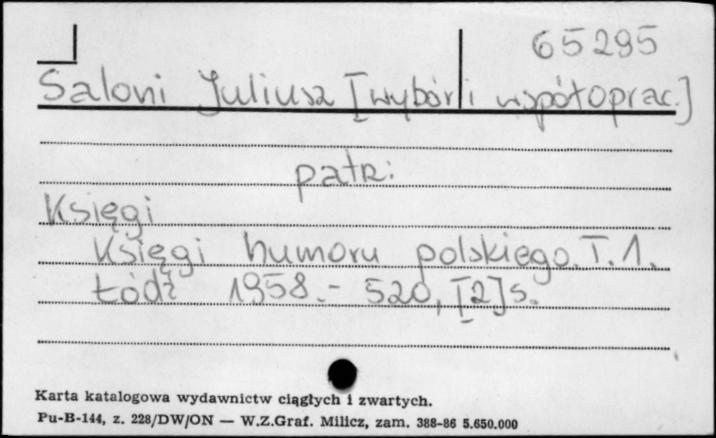 65295
Saloni Juliusz [wybór i współoprac.]
patrz:
Księgi
Księgi humoru polskiego. T. 1.
Łódź 1958. - 520, [2] s.
Karta katalogowa wydawnictw ciągłych i zwartych.
Pu-B-144, z. 228/DW/ON — W.Z.Graf. Milicz, zam. 388-86 5.650.000